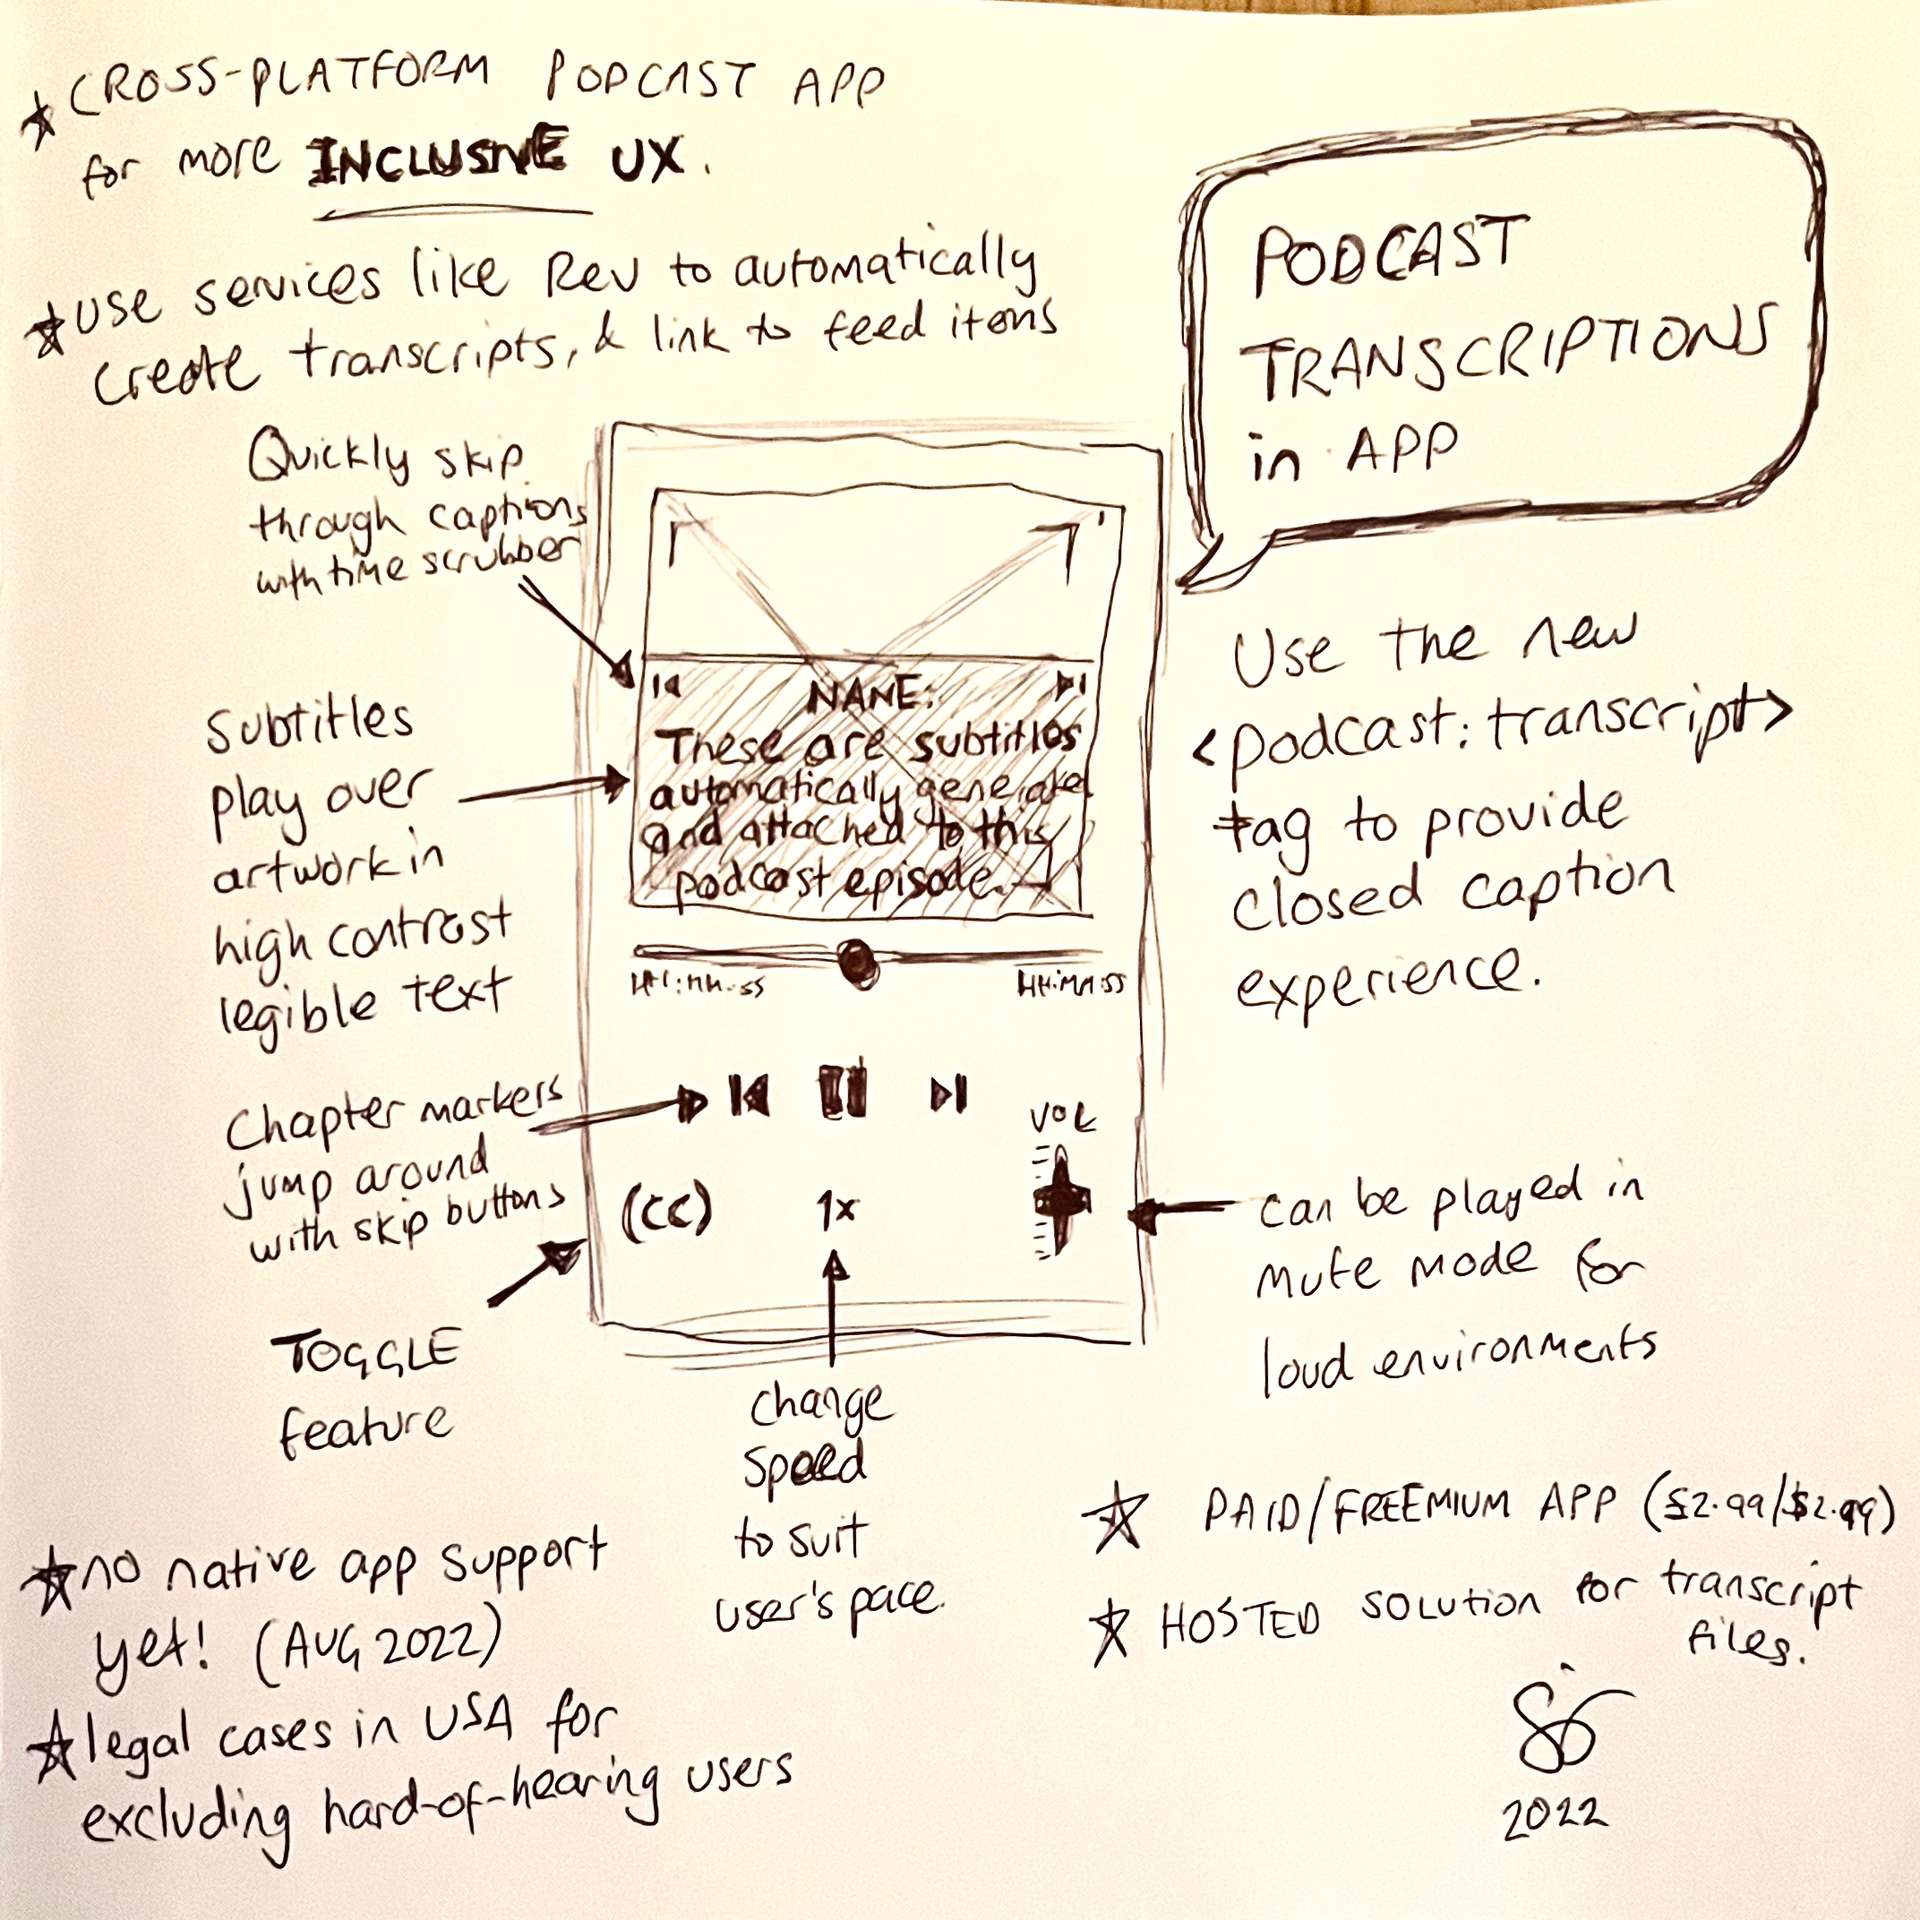 ★ CROSS-PLATFORM PODCAST APP
for more INCLUSIVE UX.
★ USE services like Rev to automatically
create transcripts, & link to feed items
PODCAST
TRANSCRIPTIONS
in APP
Quickly skip
through captions
with time scrubber
Subtitles
play over
artwork in
high contrast
legible text
Chapter markers
jump around
with skip buttons
TOGGLE
feature
NAME:
These are subtitles
automatically generated
and attached to this
podcast episode.
HH:MM:SS
HH:MM:SS
VOL
(CC)
1x
change
speed
to suit
user's pace.
Use the new
<podcast:transcript>
tag to provide
closed caption
experience.
can be played in
mute mode for
loud environments
★ no native app support
yet! (AUG 2022)
★ legal cases in USA for
excluding hard-of-hearing users
★ PAID/FREEMIUM APP (£2.99/$2.99)
★ HOSTED SOLUTION for transcript
files.
2022